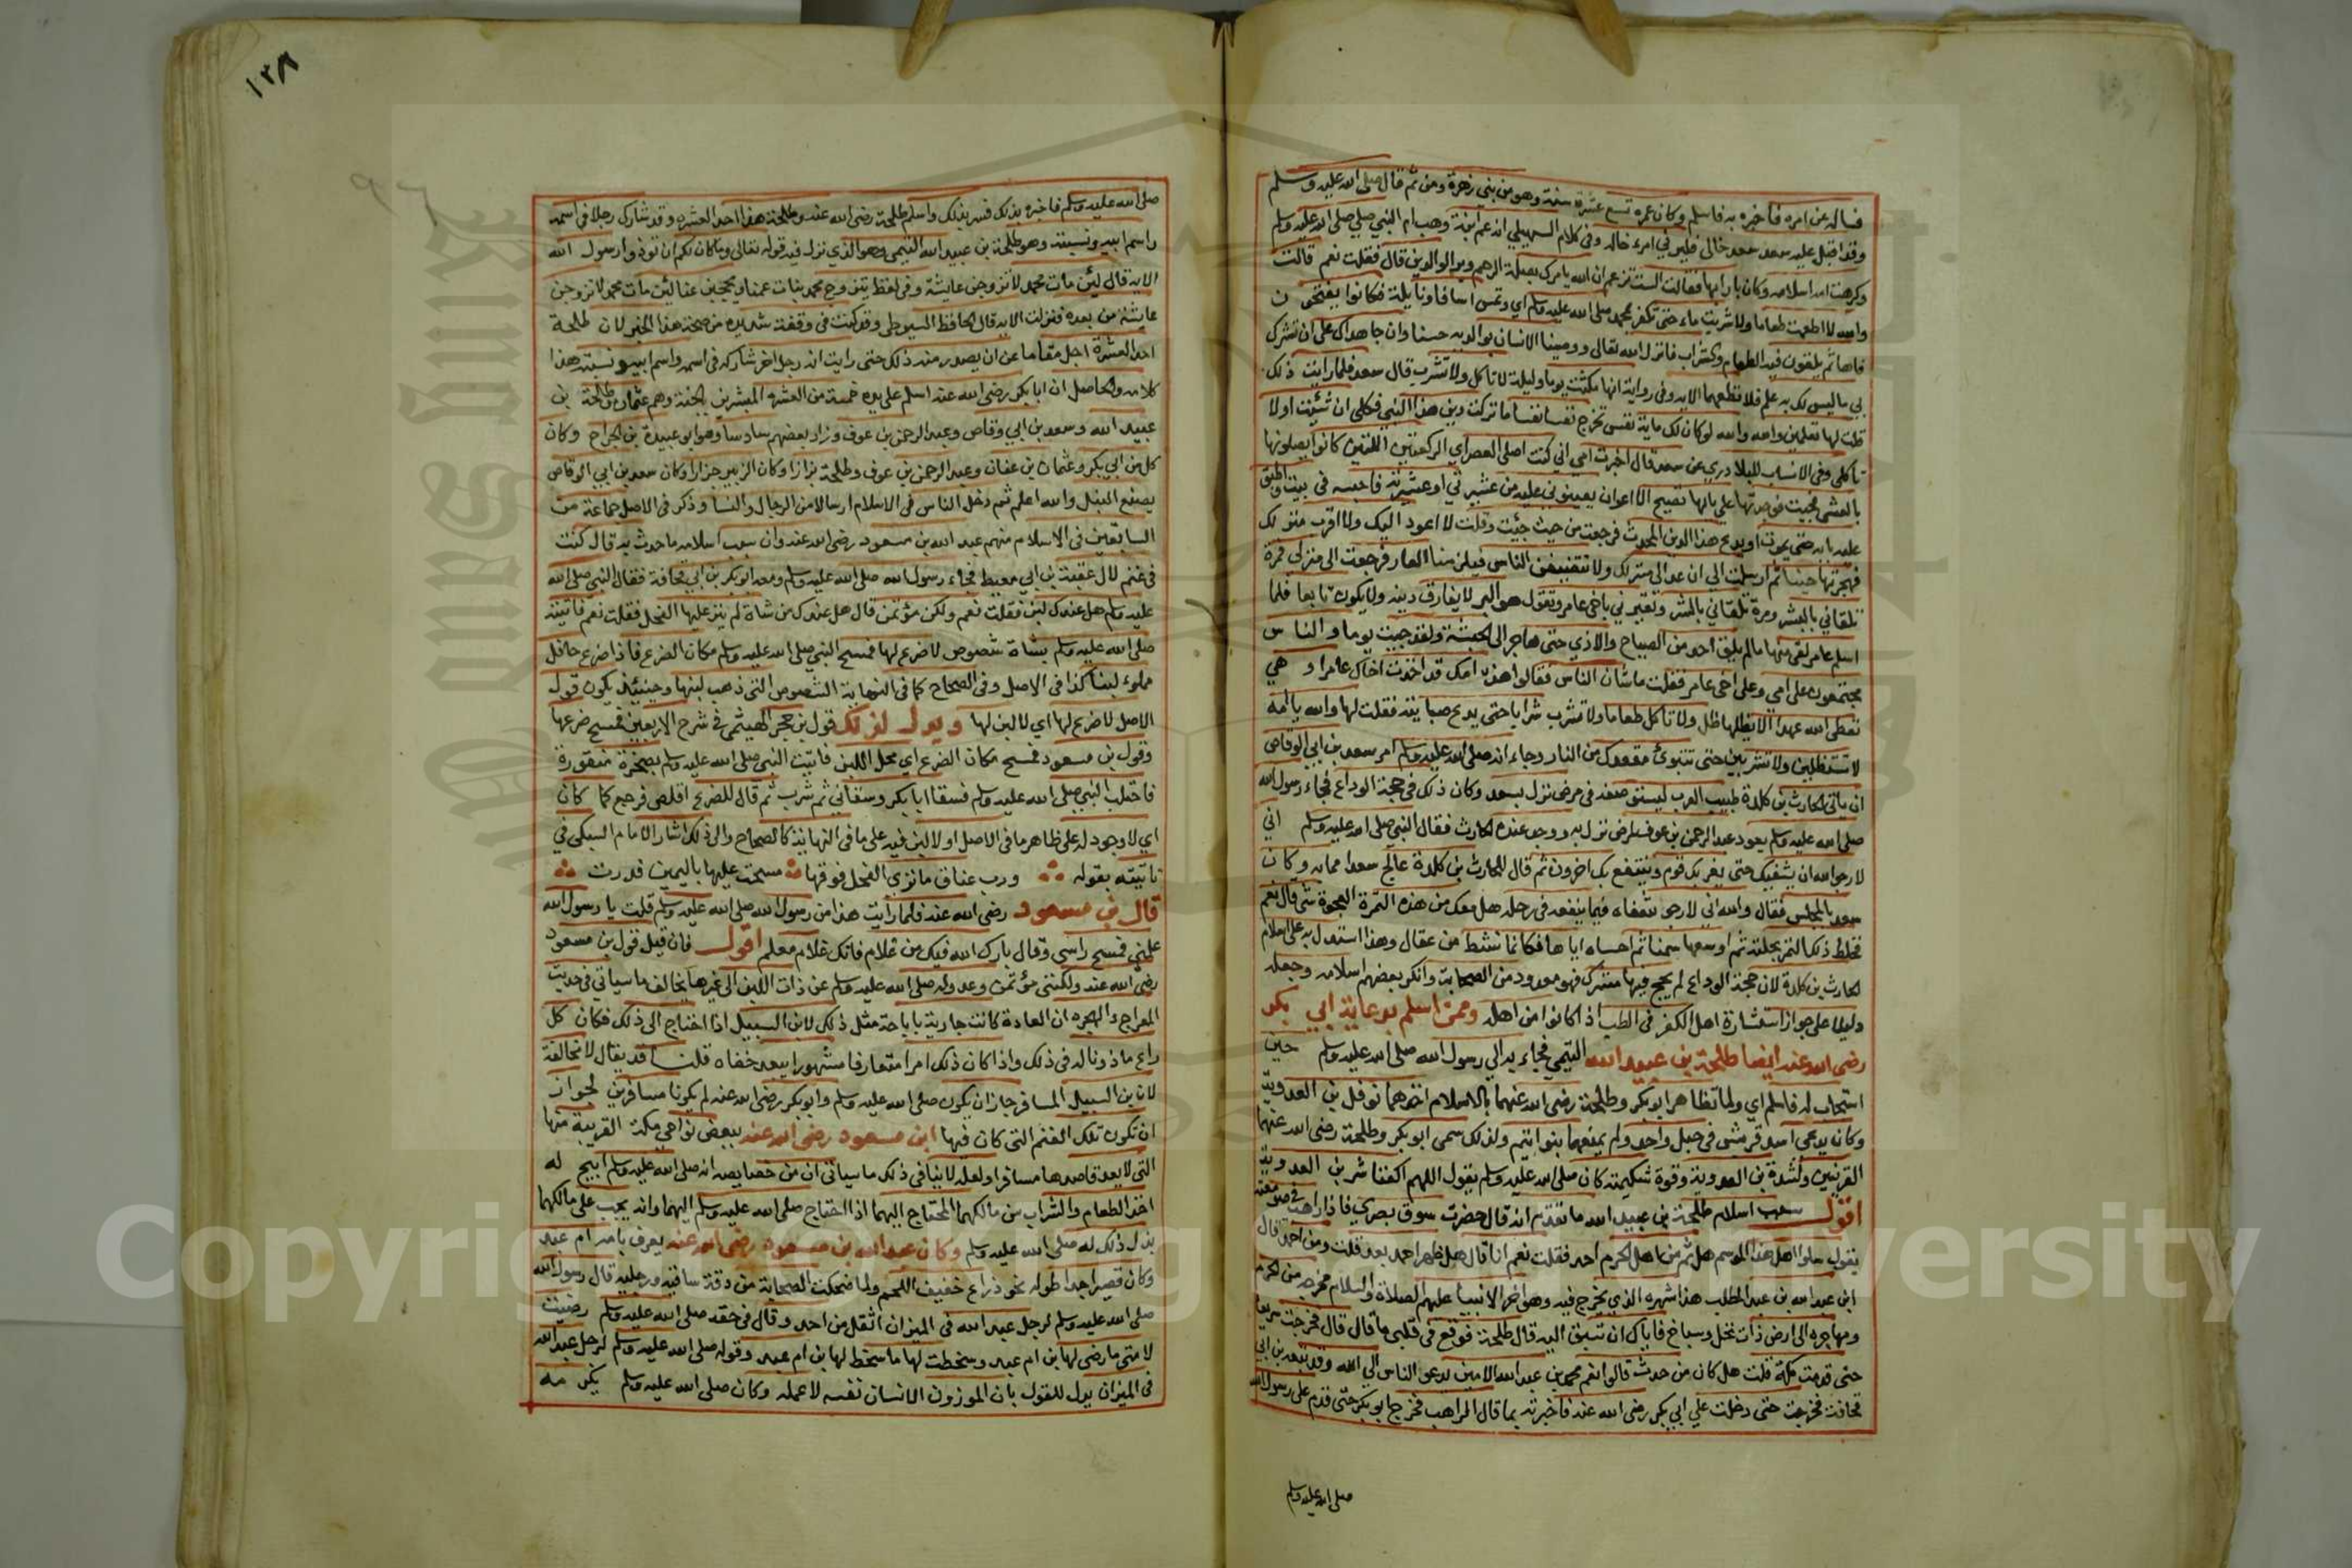 فساله عن امره فاخبره به فاسلم وكان عمره تسع عشرة سنة وهو من بني زهرة ومن ثم قال صلى الله عليه وسلم
وقد اقبل عليه سعد سعد خالي فليرني امرء خاله وفي كلام السهيلي انه عم امنة بنت وهب ام النبي صلى الله عليه وسلم
وكرهت امه اسلامه وكان بارا بها فقالت الست تزعم ان الله يامرك بصلة الرحم وبر الوالدين قال فقلت نعم قالت
والله لا اطعمت طعاما ولا شربت ماء حتى تكفر بمحمد صلى الله عليه وسلم اي وتمس اسافا ونايلة فكانوا يفتحون
فاها ثم يلقون فيه الطعام والشراب فانزل الله تعالى ووصينا الانسان بوالديه حسنا وان جاهداك على ان تشرك
بي ما ليس لك به علم فلا تطعهما الايه وفي رواية انها مكثت يوما وليلة لا تاكل ولا تشرب قال سعد فلما رايت ذلك
قلت لها تعلمين والله والله لو كان لك ماية نفس تخرج نفسا نفسا ما تركت دين هذا النبي فكلي ان شئت اولا
تاكلي وفي الانساب للبلادري عن سعد قال اخبرت امي اني كنت اصلي العصر اي الركعتين اللتين كانوا يصلونها
بالعشي فجيت فوجدتها على بابها تصيح الا اعوان يعينوني عليه من عشيرتي او عشيرته فاحبسه في بيت واطبق
عليه بابه حتى يموت او يدع هذا الدين المحدث فرجعت من حيث جئت وقلت لا اعود اليك ولا اقرب منزلك
فهجرتها حينا ثم ارسلت الي ان عد الى منزلك ولا تتضيفن الناس فيلزمنا العار فرجعت الى منزلي فمرة
تلقاني بالبشر ومرة تلقاني بالشر وتعيرني باخي عامر وتقول هو البر لا يفارق دينه ولا يكون تابعا فلما
اسلم عامر لقي منها ما لم يلق احد من الصياح والاذي حتى هاجر الى الحبشة ولقد جيت يوما والناس
مجتمعون على امي وعلى اخي عامر فقلت ما شان الناس فقالوا هذه امك قد اخذت اخاك عامرا وهي
تعطي الله عهدا الا يظلها ظل ولا تاكل طعاما ولا تشرب شرابا حتى يدع صبايته فقلت لها والله يا امه
لا تستظلين ولا تشربين حتى تتبوئ مقعدك من النار وجاء انه صلى الله عليه وسلم امر سعد بن ابي الوقاص
ان ياتي الحارث بن كلدة طبيب العرب ليستوصفه في مرض نزل بسعد وكان ذلك في حجة الوداع فجاء رسول الله
صلى الله عليه وسلم يعود عبد الرحمن بن عوف لمرض نزل به ووجد عنده الحارث فقال النبي صلى الله عليه وسلم اني
لارجو الله ان يشفيك حتى يضر بك قوم وينتفع بك اخرون ثم قال للحارث بن كلدة عالج سعدا مما به وكان
سعد بالمجلس فقال والله اني لارجو شفاه فيما ينفعه في رحله هل معك من هذه التمرة العجوة شي قال نعم
فخلط ذلك التمر بحلبة ثم اوسعها سمنا ثم احساه اياها فكانما نشط من عقال وهذا استدل به على اسلام
الحارث بن كلدة لان حجة الوداع لم يحج فيها مشرك فهو معدود من الصحابة وانكر بعضهم اسلامه وجعله
دليلا على جواز استشارة اهل الكفر في الطب اذا كانوا من اهله وممن اسلم بدعاية ابي بكر
رضي الله عنه ايضا طلحة بن عبيد الله التيمي فجاء به الى رسول الله صلى الله عليه وسلم حين
استجاب له فاسلم اي ولما تظاهر ابو بكر وطلحة رضي الله عنهما بالاسلام اخذهما نوفل بن العدوية
وكان يدعى اسد قريش في حبل واحد ولم يمنعهما بنوا تيم ولذلك سمي ابو بكر وطلحة رضي الله عنهما
القرنين ولشدة بن العدوية وقوة شكيمته كان صلى الله عليه وسلم يقول اللهم اكفنا شر بن العدوية
اقول سبب اسلام طلحة بن عبيد الله ما تقدم انه قال حضرت سوق بصري فاذا راهب في صومعته
يقول سلوا اهل هذا الموسم هل ثم من اهل الحرم احد فقلت نعم انا قال هل ظهر احمد بعد قلت ومن احمد قال
ابن عبد الله بن عبد المطلب هذا شهره الذي يخرج فيه وهو اخر الانبيا عليهم الصلاة والسلام مخرجه من الحرم
ومهاجره الى ارض ذات نخل وسباخ فاياك ان تسبق اليه قال طلحة فوقع في قلبي ما قال قال فخرجت سريعا
حتى قدمت مكة قلت هل كان من حدث قالوا نعم محمد بن عبد الله الامين يدعو الناس الى الله وقد تبعه بن ابي
قحافة فخرجت حتى دخلت علي ابي بكر رضي الله عنه فاخبرته بما قال الراهب فخرج ابو بكر حتى قدم على رسول الله
صلى الله عليه وسلم
١٣٨
٩٦
صلى الله عليه وسلم فاخبره بذلك فسر بذلك واسلم طلحة رضي الله عنه وطلحة هذا احد العشره وقد شارك رجلا في اسمه
واسم ابيه ونسبته وهو طلحة بن عبيد الله التيمي وهو الذي نزل فيه قوله تعالى وما كان لكم ان توذوا رسول الله
الايه قال لئن مات محمد لاتزوجن عايشة وفي لفظ يتزوج محمد بنات عمنا ويحجبهن عنا لئن مات محمد لاتزوجن
عايشة من بعده فنزلت الايه قال الحافظ السيوطي وقد كنت في وقفة شديده من صحة هذا الخبر لان طلحة
احد العشرة اجل مقاما من ان يصدر منه ذلك حتى رايت انه رجل اخر شاركه في اسمه واسم ابيه ونسبته هذا
كلامه والحاصل ان ابا بكر رضي الله عنه اسلم على يده خمسة من العشره المبشرين بالجنة وهم عثمان وطلحة بن
عبيد الله وسعد بن ابي وقاص وعبد الرحمن بن عوف وزاد بعضهم سادسا وهو ابو عبيدة بن الجراح وكان
كل من ابي بكر وعثمان بن عفان وعبد الرحمن بن عوف وطلحة بزازا وكان الزبير جزارا وكان سعد بن ابي الوقاص
يصنع النبل والله اعلم ثم دخل الناس في الاسلام ارسالا من الرجال والنسا وذكر في الاصل جماعة من
السابقين في الاسلام منهم عبد الله بن مسعود رضي الله عنه وان سبب اسلامه ما حدث به قال كنت
في غنم لال عقبة بن ابي معيط فجاء رسول الله صلى الله عليه وسلم ومعه ابو بكر بن ابي قحافة فقال النبي صلى الله
عليه وسلم هل عندك لبن فقلت نعم ولكن مؤتمن قال هل عندك من شاة لم ينز عليها الفحل فقلت نعم فاتيته
صلى الله عليه وسلم بشاة شصوص لا ضرع لها فمسح النبي صلى الله عليه وسلم مكان الضرع فاذا ضرع حافل
مملوء لبنا كذا في الاصل وفي الصحاح كما في النهاية الشصوص التي ذهب لبنها وحينئذ يكون قول
الاصل لا ضرع لها اي لا لبن لها ويدل لذلك قول بن حجر الهيتمي في شرح الاربعين فمسح ضرعها
وقول بن مسعود فمسح مكان الضرع اي محل اللبن فاتيت النبي صلى الله عليه وسلم بصخرة منقورة
فاحتلب النبي صلى الله عليه وسلم فسقا ابا بكر وسقاني ثم شرب ثم قال للضرع اقلص فرجع كما كان
اي لا وجود له على ظاهر ما في الاصل او لا لبن فيه على ما في النهاية كالصحاح والى ذلك اشار الامام السبكي في
تائيته بقوله ورب عناق ما نزى الفحل فوقها مسحت عليها باليمين فدرت
قال بن مسعود رضي الله عنه فلما رايت هذا من رسول الله صلى الله عليه وسلم قلت يا رسول الله
علمني فمسح راسي وقال بارك الله فيك من غلام فانك غلام معلم اقول فان قيل قول بن مسعود
رضي الله عنه ولكنني مؤتمن وعدوله صلى الله عليه وسلم عن ذات اللبن الى غيرها يخالف ما سياتي في حديث
المعراج والهجره ان العادة كانت جارية باباحة مثل ذلك لابن السبيل اذا احتاج الى ذلك فكان كل
راع ماذونا له في ذلك واذا كان ذلك امرا متعارفا مشهورا يبعد خفاه قلنا قد يقال لا مخالفة
لان بن السبيل المسافر جاز ان يكون صلى الله عليه وسلم وابو بكر رضي الله عنه لم يكونا مسافرين لجواز
ان تكون تلك الغنم التي كان فيها ابن مسعود رضي الله عنه ببعض نواحي مكة القريبة منها
التي لا يعد قاصدها مسافرا ولعله لا ينافي ذلك ما سياتي ان من خصايصه انه صلى الله عليه وسلم ابيح له
اخذ الطعام والشراب من مالكهما المحتاج اليهما اذا احتاج صلى الله عليه وسلم اليهما وانه يجب على مالكهما
بذل ذلك له صلى الله عليه وسلم وكان عبد الله بن مسعود رضي الله عنه يعرف بامه ام عبد
وكان قصيرا جدا طوله نحو ذراع خفيف اللحم ولما ضحكت الصحابة من دقة ساقيه ورجليه قال رسول الله
صلى الله عليه وسلم لرجل عبد الله في الميزان اثقل من احد وقال في حقه صلى الله عليه وسلم رضيت
لامتي ما رضي لها بن ام عبد وسخطت لها ما سخط لها بن ام عبد وقوله صلى الله عليه وسلم لرجل عبد الله
في الميزان يدل للقول بان الموزون الانسان نفسه لا عمله وكان صلى الله عليه وسلم يكرمه
Copyright © King Saud University